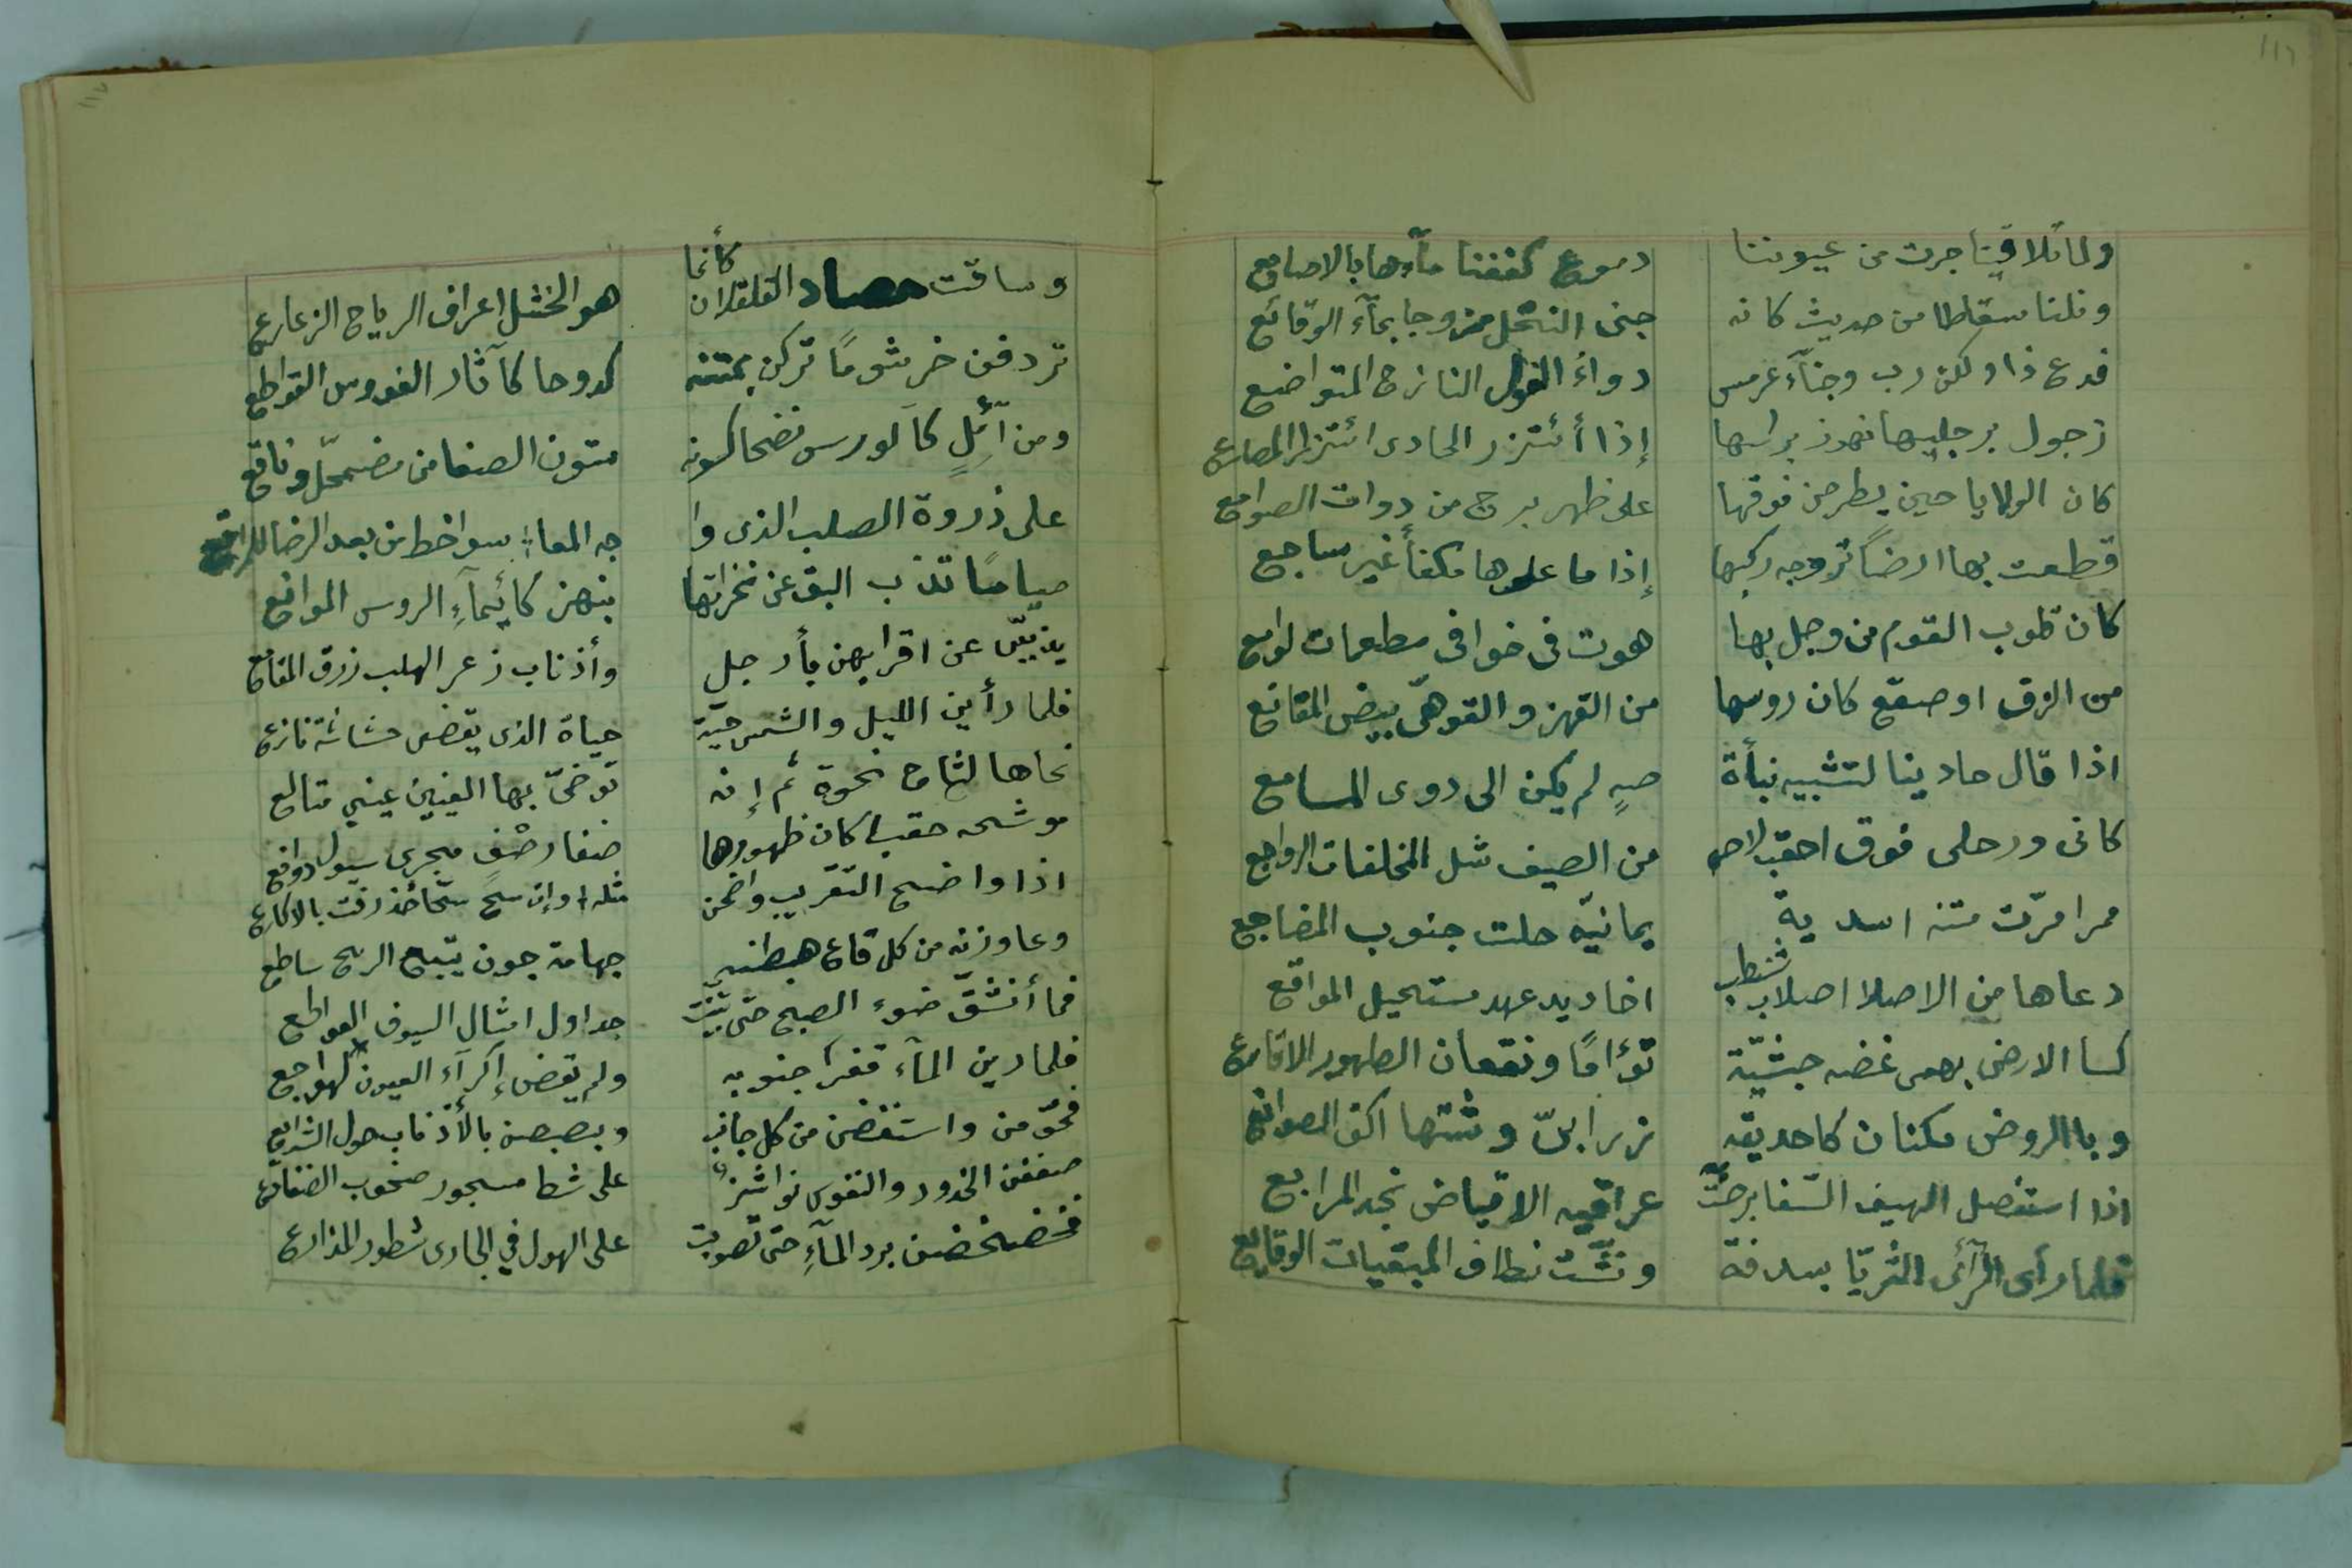 ١١٦
ولما تلاقينا جرت من عيوننا دموع كففنا مآءها بالاصابع
ونلنا سقاطا من حديث كانه جنى النحل ممزوجا بمآء الوقائع
فدع ذا ولكن رب وجنآء عرمس دوآء الغول النازح المتواضع
زجول برجليها نهوز براسها إذا أئتزر الحادى ائتزار المصارع
كان الولايا حين يطرحن فوقها على ظهر برج من دوات الصوامع
قطعت بها ارضًا تروجه ركبها إذا ما علوها مكفأ غير ساجع
كان قلوب القوم من وجل بها هوت فى خوافى مطعمات لوامع
من الزرق او صقع كان روسها من القهز والقوهىّ بيض المقانع
اذا قال حادينا لتشبيه نبأة صهٍ لم يكن الى دوى المسامع
كانى ورحلى فوق احقب لاحه من الصيف شل المخلفات الرواجع
ممرا مرّت متنه اسدية يمانيّه حلت جنوب المضاجع
دعاها من الاصلا اصلاب شنظب اخاديد عهد مستحيل المواقع
كسا الارض بهمى غضه حبشيّة تؤامًا ونقعان الظهور الاقارع
وبا الروض مكنان كا حديقه زرابىّ وشتها اكف الصوانع
اذا استنصل الهيف السّفا برحتّ عراقيه الاقياض نجد المرابع
فلما رأى الرآئى الثريّا بسدفة ونشّت نطاف المبقيات الوقايع
١١٧
وساقت حصاد القلقلان كأنما هو الخشل اعراف الرياح الزعازع
تردفن خرشومًا تركن بمتنه كدوحا كآثار الفووس القواطع
ومن آئلٍ كآلورس نضحا كسونه متون الصفا من مضمحلّ وناقع
على ذروة الصلب الذى وا جه المعا سواخط من بعد الرضا للمراتع
صيامًا تذب البق عن نخراتها بنهز كأئيمآءِ الروس الموانع
يذببّن عن اقرابهن بأرجل وأذناب زعر الهلب زرق المقامع
فلما رأين الليل والشمس حيّة حياة الذى يقضى حشاشة نازع
نحاها لثاج نحوة ثم إنه توخىّ بها العينين عيني متالع
موشحه حقبا كان ظهورها صفا رصْفٍ مجرى سيول دوافع
اذا واضح التقريب واضحن مثله وإن سح سحّا خذرفت بالاكارع
وعاوزنه من كل قاع هبطنه جهامة جون يتبع الريح ساطع
فما أنشقّ ضوء الصبح حتى تبيّنت جداول امثال السيوف القواطع
فلما رين المآء قفرا جنوبه ولم يقض إكرآء العيون الهواجع
فحوّمن واستنفضن من كل جانب وبصبصن بالأذناب حول الشرايع
صففن الخدود والنفوس نواشز على شطا مسجور صخوب الضفادع
فخضخضن برد المآءِ حتى تصوبت على الهول في الجارى شطور المذارع